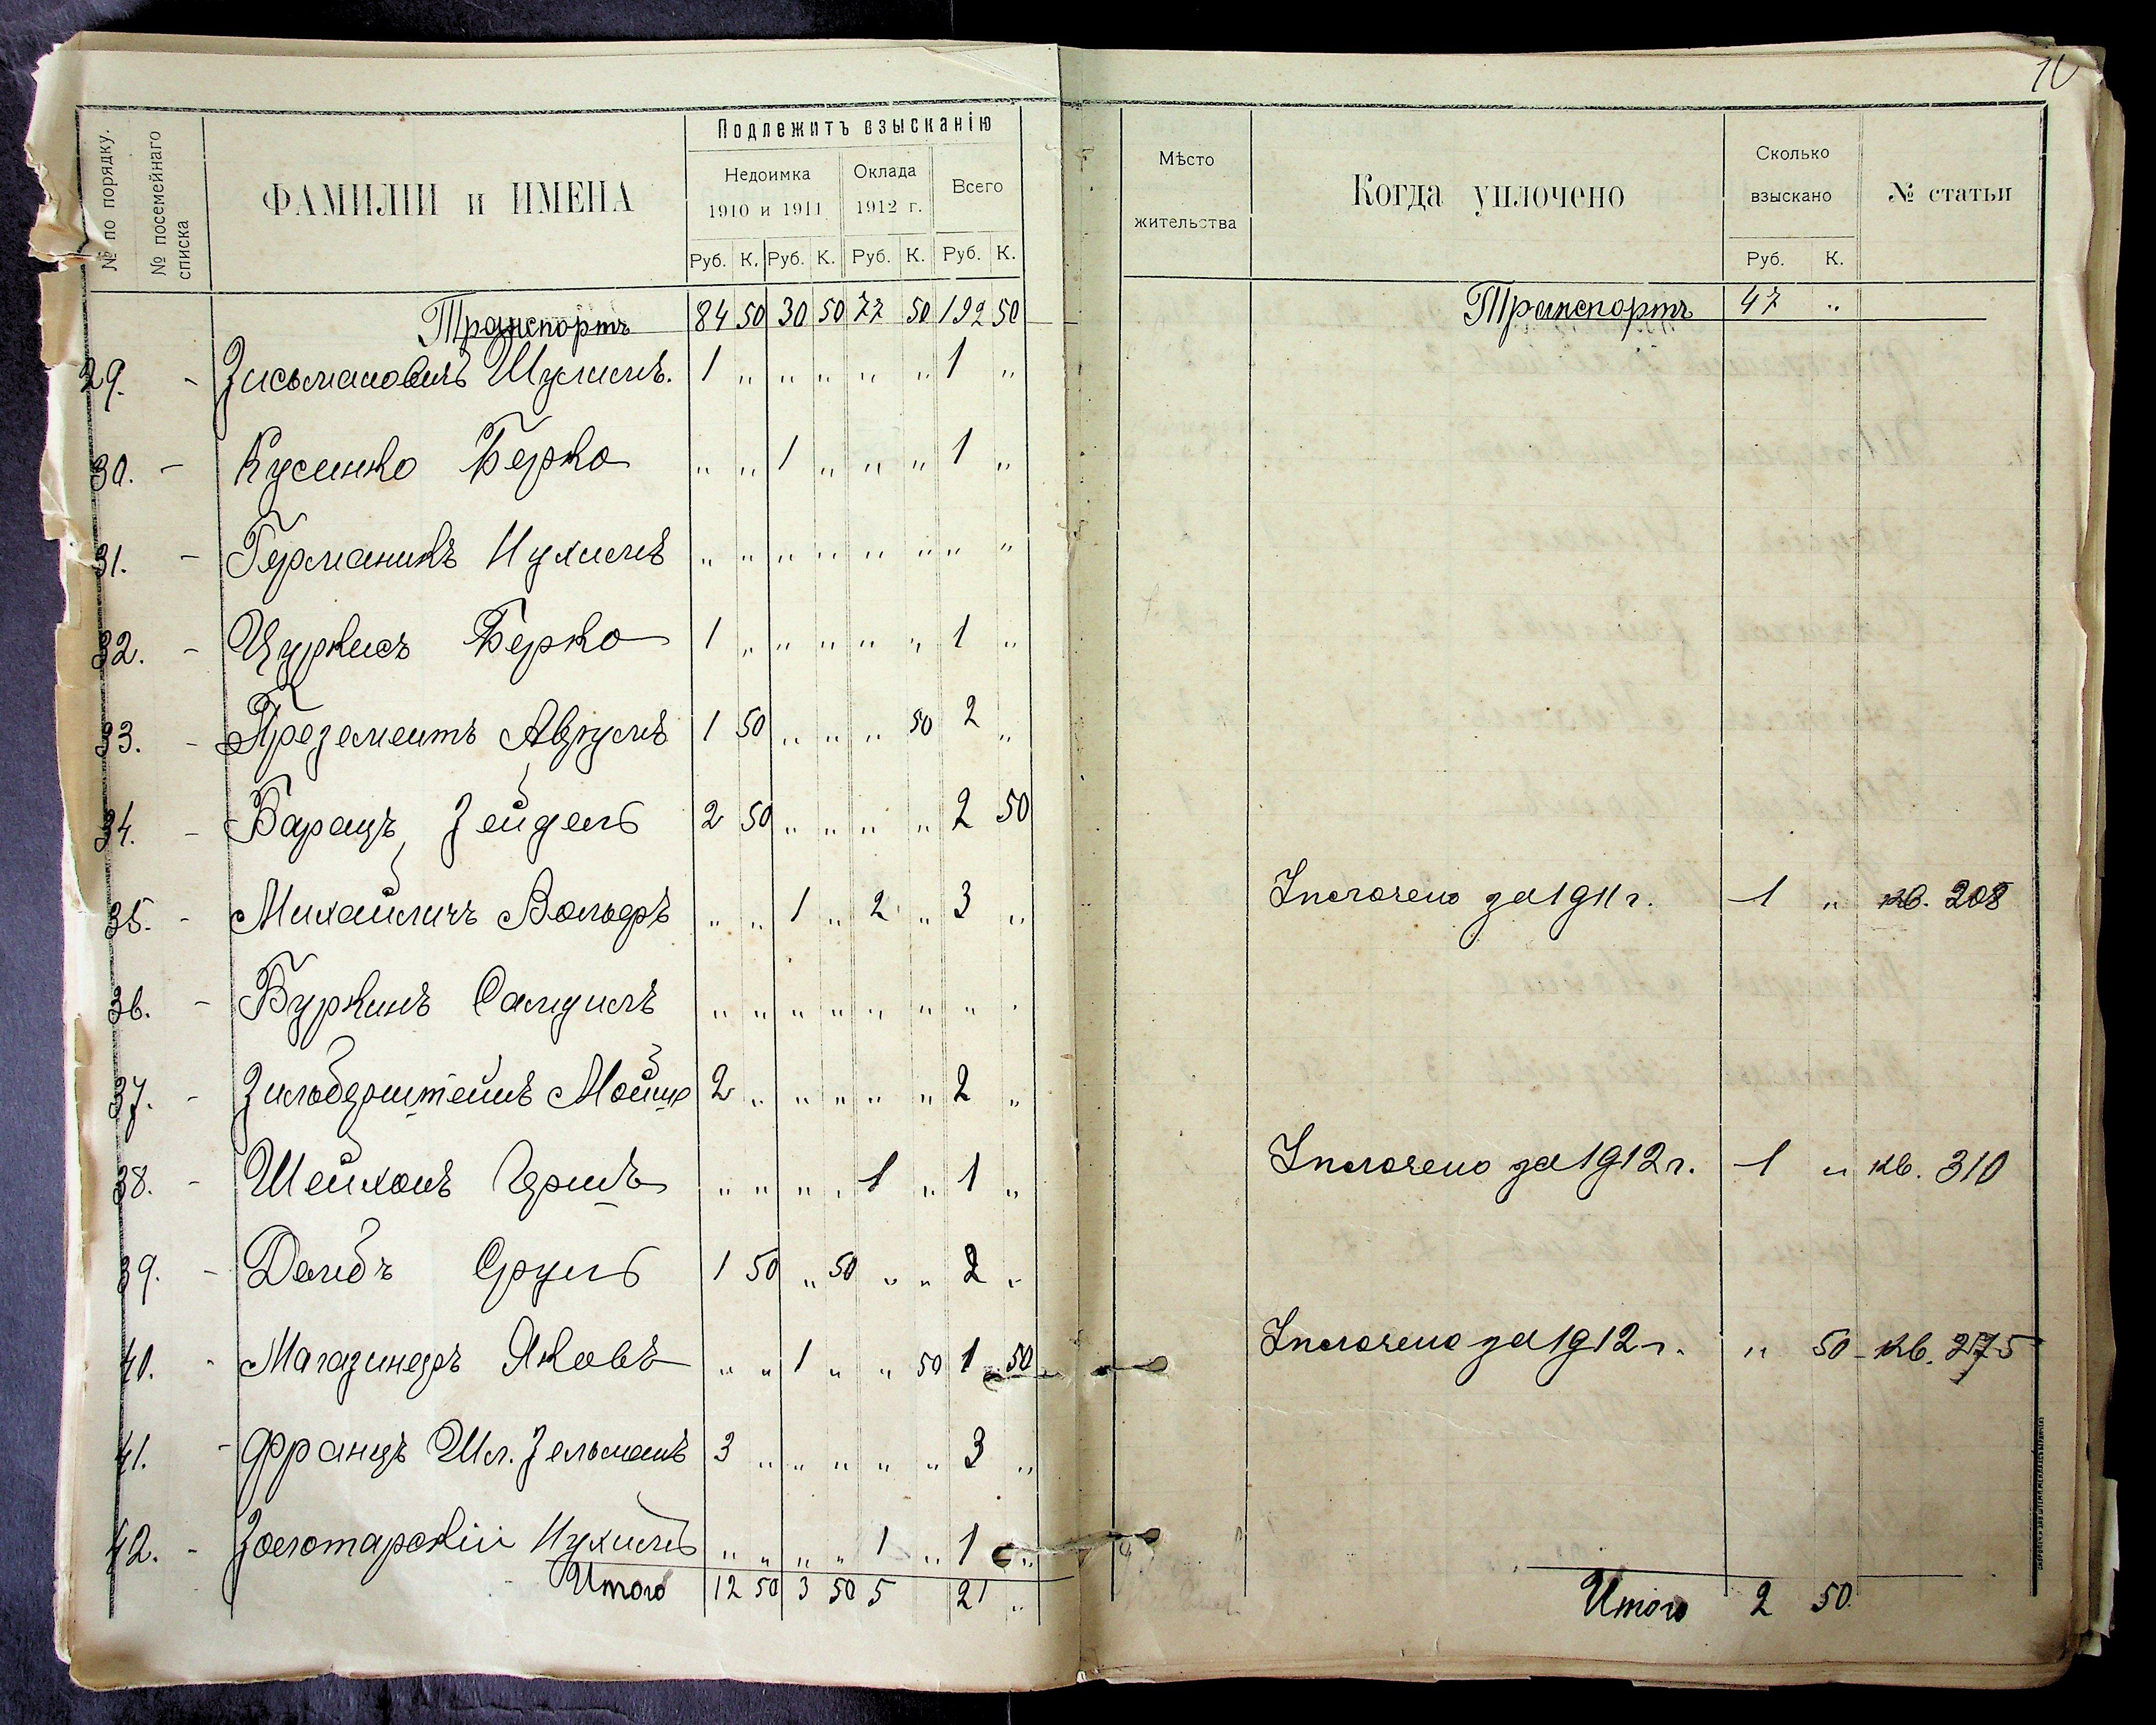 10
№ по порядку.
№ посемейнаго списка
ФАМИЛІИ и ИМЕНА
Подлежитъ взысканію
Недоимка 1910 и 1911
Оклада 1912 г.
Всего
Руб. К. Руб. К. Руб. К. Руб. К.
Мѣсто жительства
Когда уплочено
Сколько взыскано
Руб. К.
№ статьи
Транспортъ 84 50 30 50 77 50 192 50 Транспортъ 47 „
29. - Зисьмановичъ Шулимъ. 1 „ „ „ „ „ 1 „
30. - Кусенко Берко „ „ 1 „ „ „ 1 „
31. - Германикъ Нухимъ „ „ „ „ „ „ „ „
32. - Цуркисъ Берко 1 „ „ „ „ „ 1 „
33. - Презементъ Аврумъ 1 50 „ „ „ 50 2 „
34. - Барацъ Зейдель 2 50 „ „ „ „ 2 50
35. - Михайличъ Вольфъ „ „ 1 „ 2 „ 3 „ Уплочено за 1911 г. 1 „ кв. 208
36. - Буркинъ Самуилъ „ „ „ „ „ „ „ „
37. - Зильберштейнъ Мойше 2 „ „ „ „ „ 2 „
38. - Шейхонъ Гершъ „ „ „ „ 1 „ 1 „ Уплочено за 1912 г. 1 „ кв. 310
39. - Долбъ Сруль 1 50 „ 50 „ „ 2 „
40. - Магазинеръ Яковъ „ „ 1 „ „ 50 1 50 Уплочено за 1912 г. „ 50 кв. 275
41. - Францъ Шл. Зельманъ 3 „ „ „ „ „ 3 „
42. - Золотарскій Нухимъ „ „ „ „ 1 „ 1 „
Итого 12 50 3 50 5 21 „ Итого 2 50.